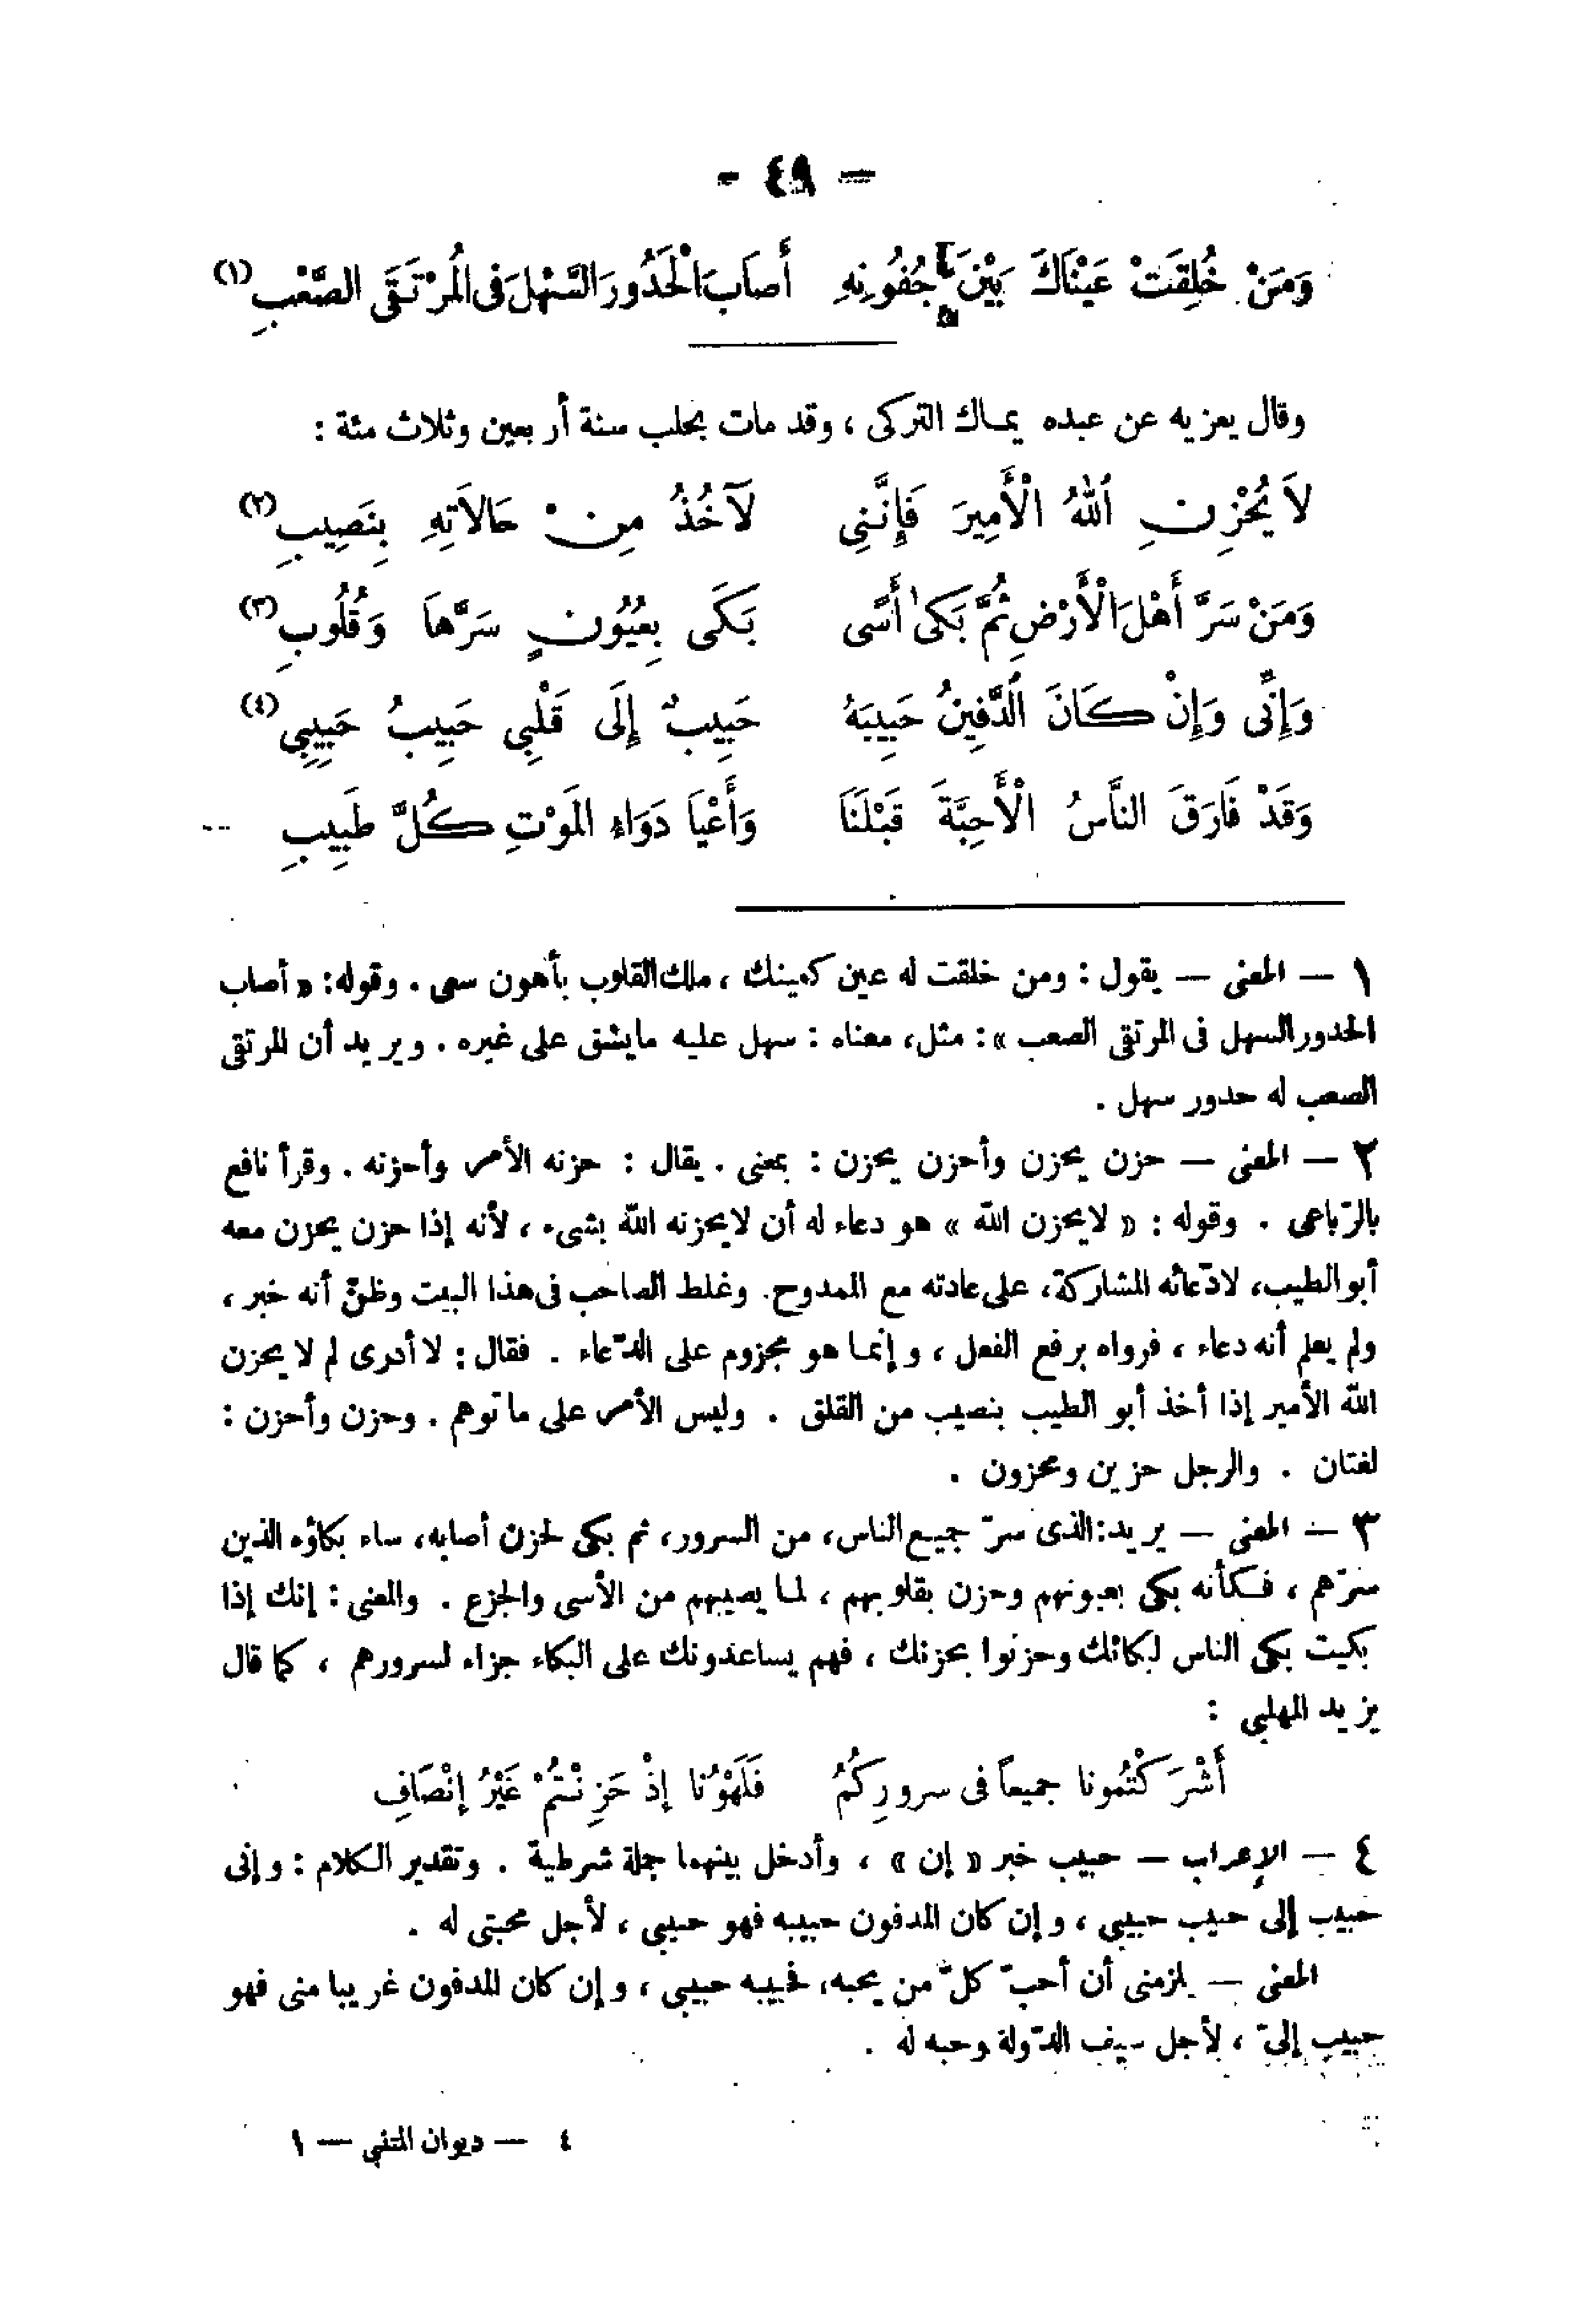 — ٤٩ -
وَمَنْ خُلِقَتْ عَيْنَاكَ بَيْنَ جُفُونِهِ أَصَابَ الْحَدُورَ السَّهْلَ فى الْمُرْتَقَى الصَّعْبِ (١)
وقال يعزيه عن عبده يماك التركى ، وقد مات بحلب سنة أربعين وثلاث مئة :
لاَ يُحْزِنِ اللهُ الْأَمِيرَ فَإِنَّنِى لَآخُذُ مِنْ حَالاَتِهِ بِنَصِيبِ (٢)
وَمَنْ سَرَّ أَهْلَ الْأَرْضِ ثُمَّ بَكَى أَسًى بَكَى بِعُيُونٍ سَرَّهاَ وَقُلُوبِ (٣)
وَإِنِّى وَإِنْ كَانَ الدَّفِينُ حَبِيبَهُ حَبِيبٌ إِلَى قَلْبِى حَبِيبُ حَبِيبِى (٤)
وَقَدْ فَارَقَ النَّاسُ الْأَحِبَّةَ قَبْلَنَا وَأَعْيَا دَوَاءُ المَوْتِ كُلَّ طَبِيبِ
١ — المعنى — يقول : ومن خلقت له عين كعينك ، ملك القلوب بأهون سعى . وقوله : « أصاب
الحدور السهل فى المرتقى الصعب » : مثل، معناه : سهل عليه مايشق على غيره . ويريد أن المرتقى
الصعب له حدور سهل .
٢ — المعنى — حزن يحزن وأحزن يحزن : بمعنى . يقال : حزنه الأمر وأحزنه . وقرأ نافع
بالرّباعى . وقوله : « لايحزن الله » هو دعاء له أن لايحزنه الله بشىء ، لأنه إذا حزن يحزن معه
أبو الطيب، لادّعائه المشاركة، على عادته مع الممدوح. وغلط الصاحب فى هذا البيت وظنّ أنه خبر ،
ولم يعلم أنه دعاء ، فرواه برفع الفعل ، وإنما هو مجزوم على الدّعاء . فقال : لا أدرى لم لا يحزن
الله الأمير إذا أخذ أبو الطيب بنصيب من القلق . وليس الأمر على ما توهم . وحزن وأحزن :
لغتان . والرجل حزين ومحزون .
٣ — المعنى — يريد: الذى سرّ جميع الناس، من السرور، ثم بكى لحزن أصابه، ساء بكاؤه الذين
سرّهم ، فكأنه بكى بعيونهم وحزن بقلوبهم ، لما يصيبهم من الأسى والجزع . والمعنى : إنك إذا
بكيت بكى الناس لبكائك وحزنوا بحزنك ، فهم يساعدونك على البكاء جزاء لسرورهم ، كما قال
يزيد المهلبى :
أَشْرَكْتُمُونا جميعاً فى سرورِكُمُ فَلَهْوُنا إذْ حَزِنْتُمْ غَيْرُ إنْصَافِ
٤ — الإعراب — حبيب خبر « إن » ، وأدخل بينهما جملة شرطية . وتقدير الكلام : وإنى
حبيب إلى حبيب حبيبى ، وإن كان المدفون حبيبه فهو حبيبى ، لأجل محبتى له .
المعنى — يلزمنى أن أحبّ كلّ من يحبه، فحبيبه حبيبى ، وإن كان المدفون غريبا منى فهو
حبيب إلىّ ، لأجل سيف الدّولة وحبه له .
٤ — ديوان المتنبى — ١